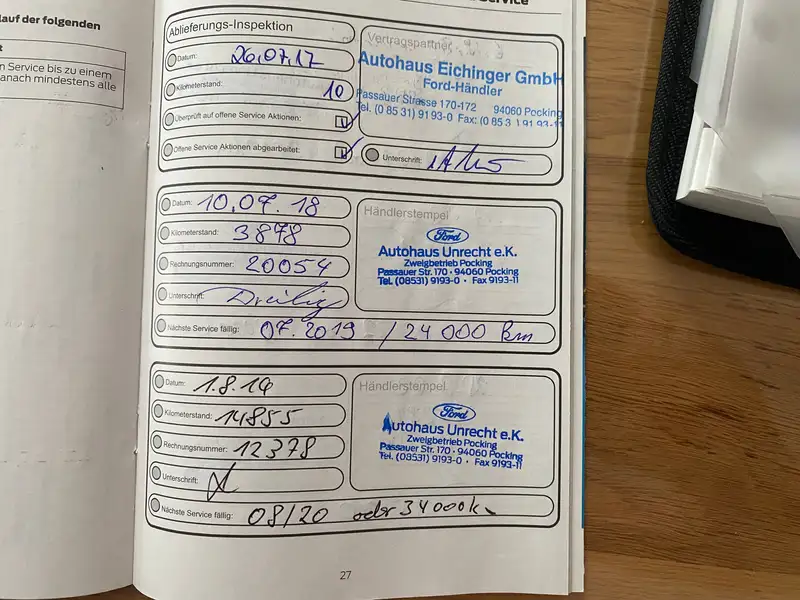 lauf der folgenden
n Service bis zu einem
anach mindestens alle
Service
Ablieferungs-Inspektion
Datum: 26.07.17
Kilometerstand: 10
Überprüft auf offene Service Aktionen:
Offene Service Aktionen abgearbeitet:
Vertragspartner
Autohaus Eichinger GmbH
Ford-Händler
Passauer Strasse 170-172 94060 Pocking
Tel. (0 85 31) 91 93-0 Fax: (0 85 3 ) 91 93-11
Unterschrift:
Datum: 10.07.18
Kilometerstand: 3878
Rechnungsnummer: 20054
Unterschrift:
Nächste Service fällig: 07.2019 / 24 000 km
Händlerstempel
Ford
Autohaus Unrecht e.K.
Zweigbetrieb Pocking
Passauer Str. 170 · 94060 Pocking
Tel. (08531) 9193-0 · Fax 9193-11
Datum: 1.8.19
Kilometerstand: 14855
Rechnungsnummer: 12378
Unterschrift:
Nächste Service fällig: 08/20 oder 34000k
Händlerstempel
Ford
Autohaus Unrecht e.K.
Zweigbetrieb Pocking
Passauer Str. 170 · 94060 Pocking
Tel. (08531) 9193-0 · Fax 9193-11
27